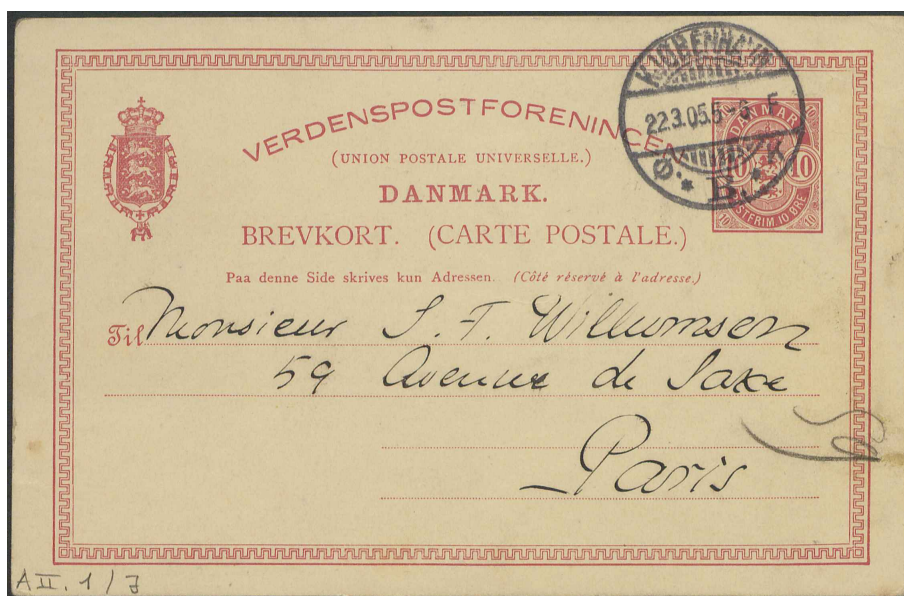 VERDENSPOSTFORENINGEN
(UNION POSTALE UNIVERSELLE.)
DANMARK.
BREVKORT. (CARTE POSTALE.)
Paa denne Side skrives kun Adressen. (Côté réservé à l'adresse.)
KJØBENHAVN
22.3.05.5-6 F
Ø. * B. *
DANMARK
10 10
POSTFRIM 10 ØRE
Til Monsieur J. F. Willumsen
59 Avenue de Saxe
Paris
AII. 1/7